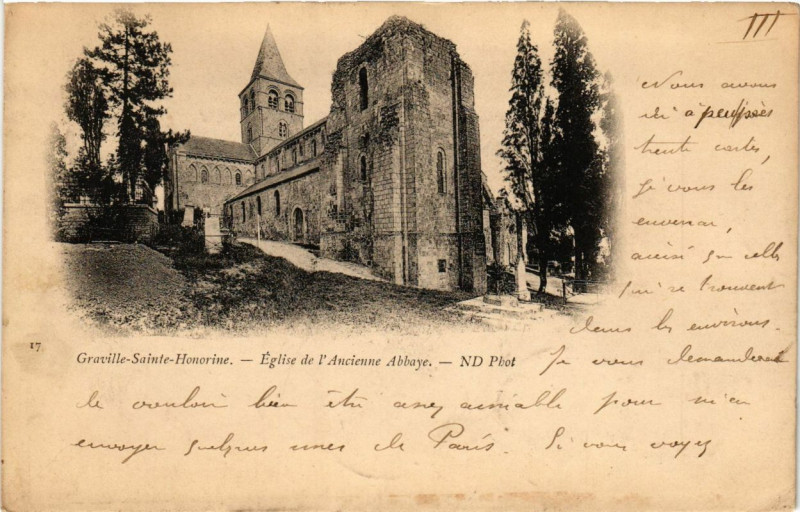 III
Nous avons
ici à peu près
trente cartes,
je vous les
enverrai,
ainsi que celles
qui se trouvent
dans les environs.
Je vous demanderai
17
Graville-Sainte-Honorine. — Église de l'Ancienne Abbaye. — ND Phot
de vouloir bien être assez aimable pour m'en
envoyer quelques unes de Paris. Si vous voyez